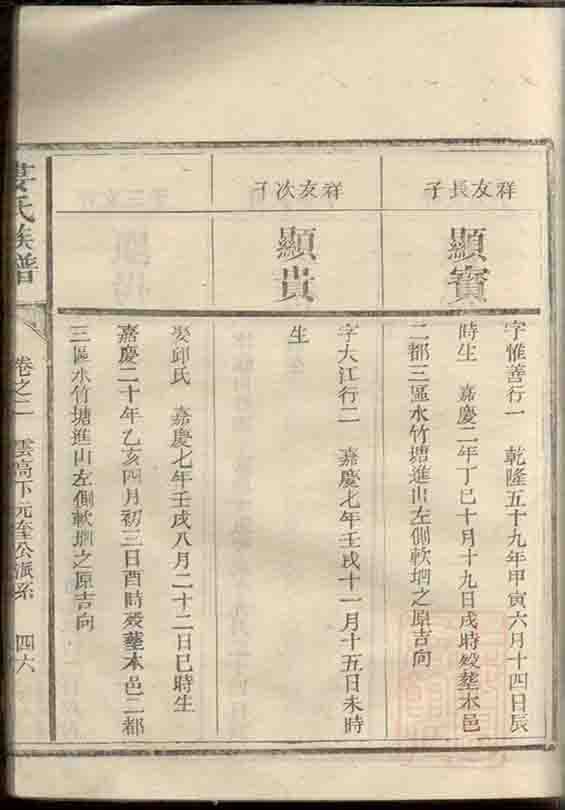 祥友長子
顯寶
字惟善行一 乾隆五十九年甲寅六月十四日辰
時生 嘉慶二年丁巳十月十九日戌時歿塟本邑
二都三區水竹塘進山左側軟堋之原吉向
祥友次子
顯貴
字大江行二 嘉慶七年壬戌十一月十五日未時
生
娶邱氏 嘉慶七年壬戌八月二十二日巳時生
嘉慶二十年乙亥四月初三日酉時歿塟本邑二都
三區水竹塘進山左側軟堋之原吉向
氏族譜 卷之二 雲高下元奎公派系 四六